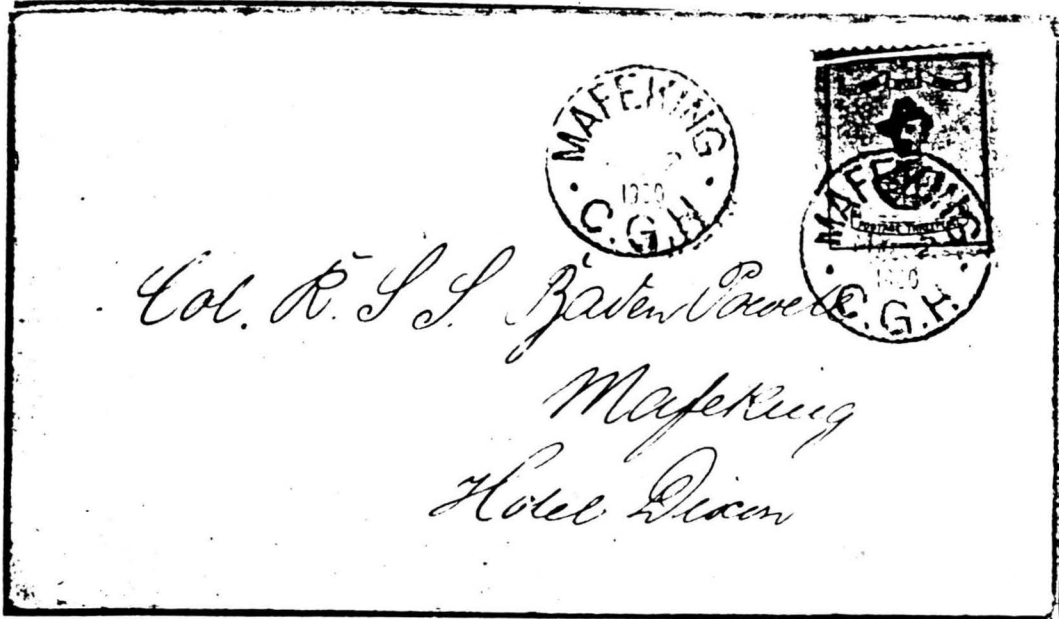 MAFEKING
C.G.H
MAFEKING
C.G.H.
Col. R. S. S. Baden Powell
Mafeking
Hotel Dixon